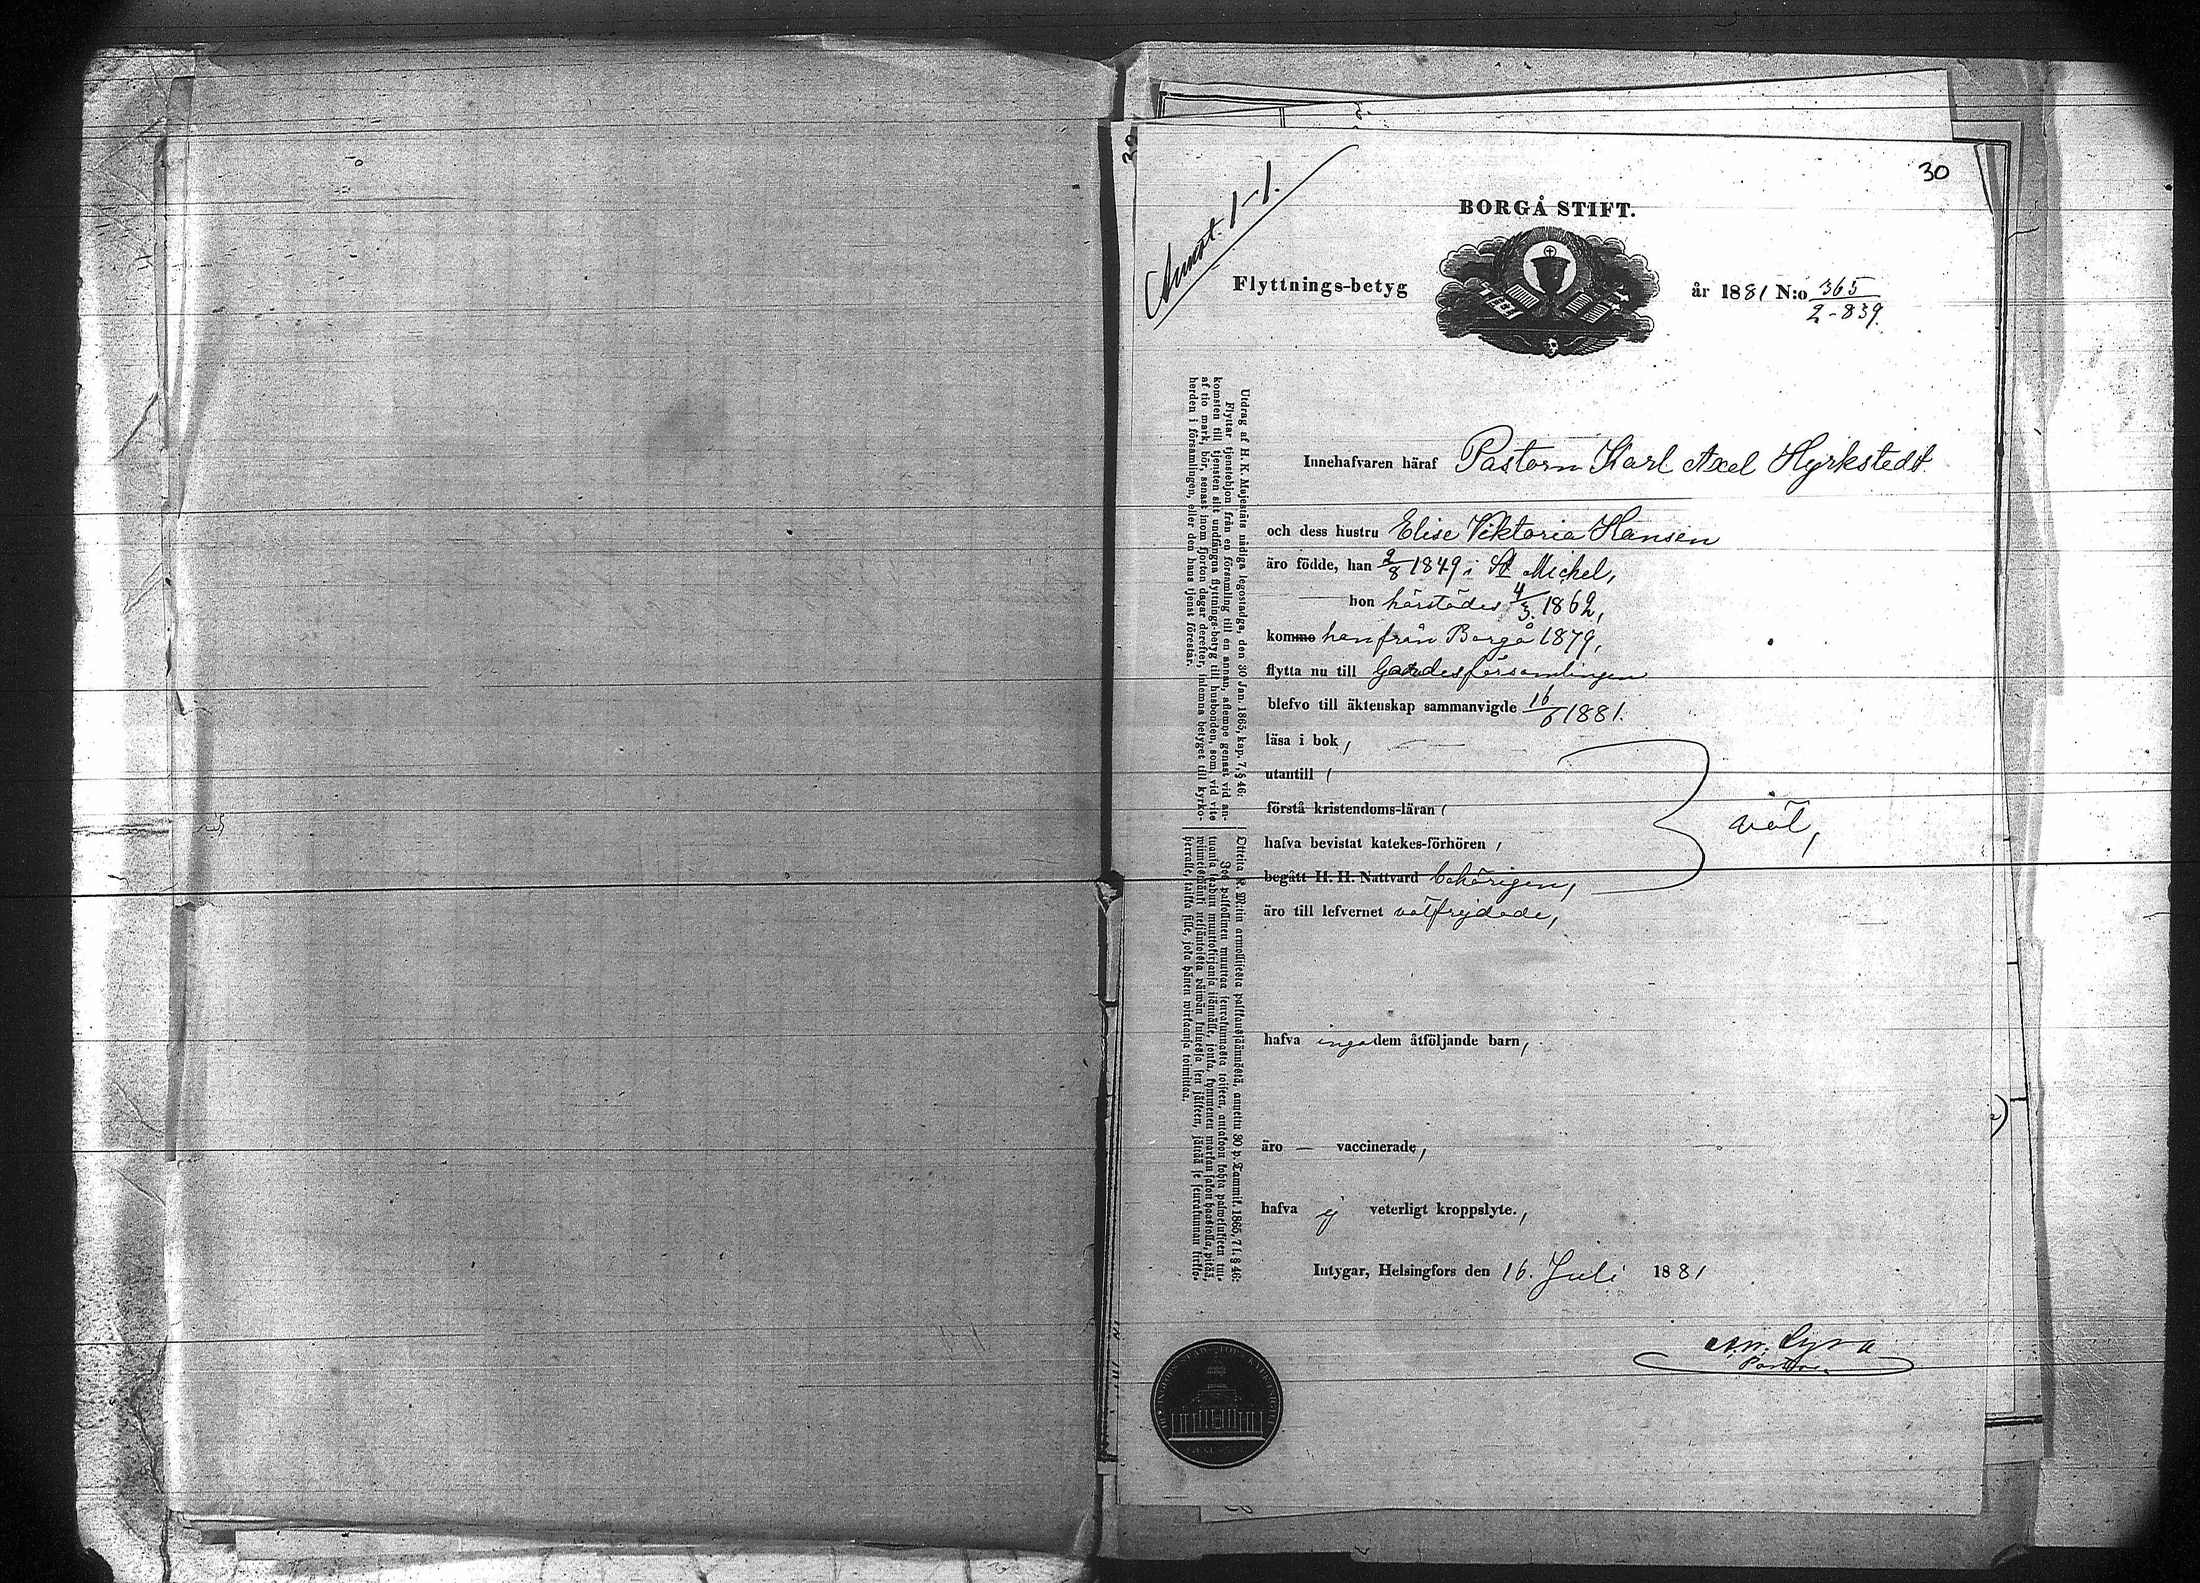 30
Annot. 1-1.
BORGÅ STIFT.
Flyttnings-betyg
år 1881 N:o 365
2-839.
Innehafvaren häraf Pastorn Karl Axel Hyrkstedt
och dess hustru Elise Viktoria Hansen
äro födde, han 2/8 1849 i St Michel,
hon härstädes 4/3. 1862,
komme han från Borgå 1879,
flytta nu till Gardesförsamlingen
blefvo till äktenskap sammanvigde 16/6 1881.
läsa i bok,
utantill
förstå kristendoms-läran
väl,
hafva bevistat katekes-förhören,
begått H. H. Nattvard behörigen,
äro till lefvernet välfrejdade,
hafva inga dem åtföljande barn,
äro — vaccinerade,
hafva ej veterligt kroppslyte.,
Intygar, Helsingfors den 16. Juli 1881
Pastor.
Utdrag af H. K. Majestäts nådiga legostadga, den 30 Jan. 1865, kap. 7, § 46:
Flyttar tjenstehjon från en församling till en annan, aflemne genast vid an-
komsten till tjensten sitt undfångna flyttnings-betyg till husbonden, som, vid vite
af tio mark, bör, senast inom fjorton dagar derefter, inlemna betyget till kyrko-
herden i församlingen, eller den hans tjenst förestår.
Otteita K. M:tin armollisesta palkkaussäännöstä, annettu 30 p. Tammik. 1865, 7 l. § 46:
Jos palkollinen muuttaa seurakunnasta toiseen, antakoon kohta palwelukseen tul-
tuansa saadun muuttokirjansa isännälle, jonka, kymmenen markan sakon haastolla, pitää,
wiimeistänsä neljäntoista päiwän kuluessa sen jälkeen, jättää se seurakunnan kirkko-
herralle, taikka sille, jota hänen wirkaansa toimittaa.